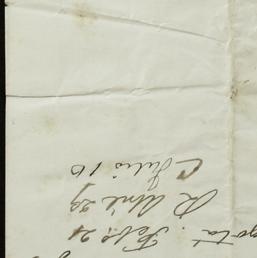 gotá. Feb.o 21
R Abril 29
C Julio 16